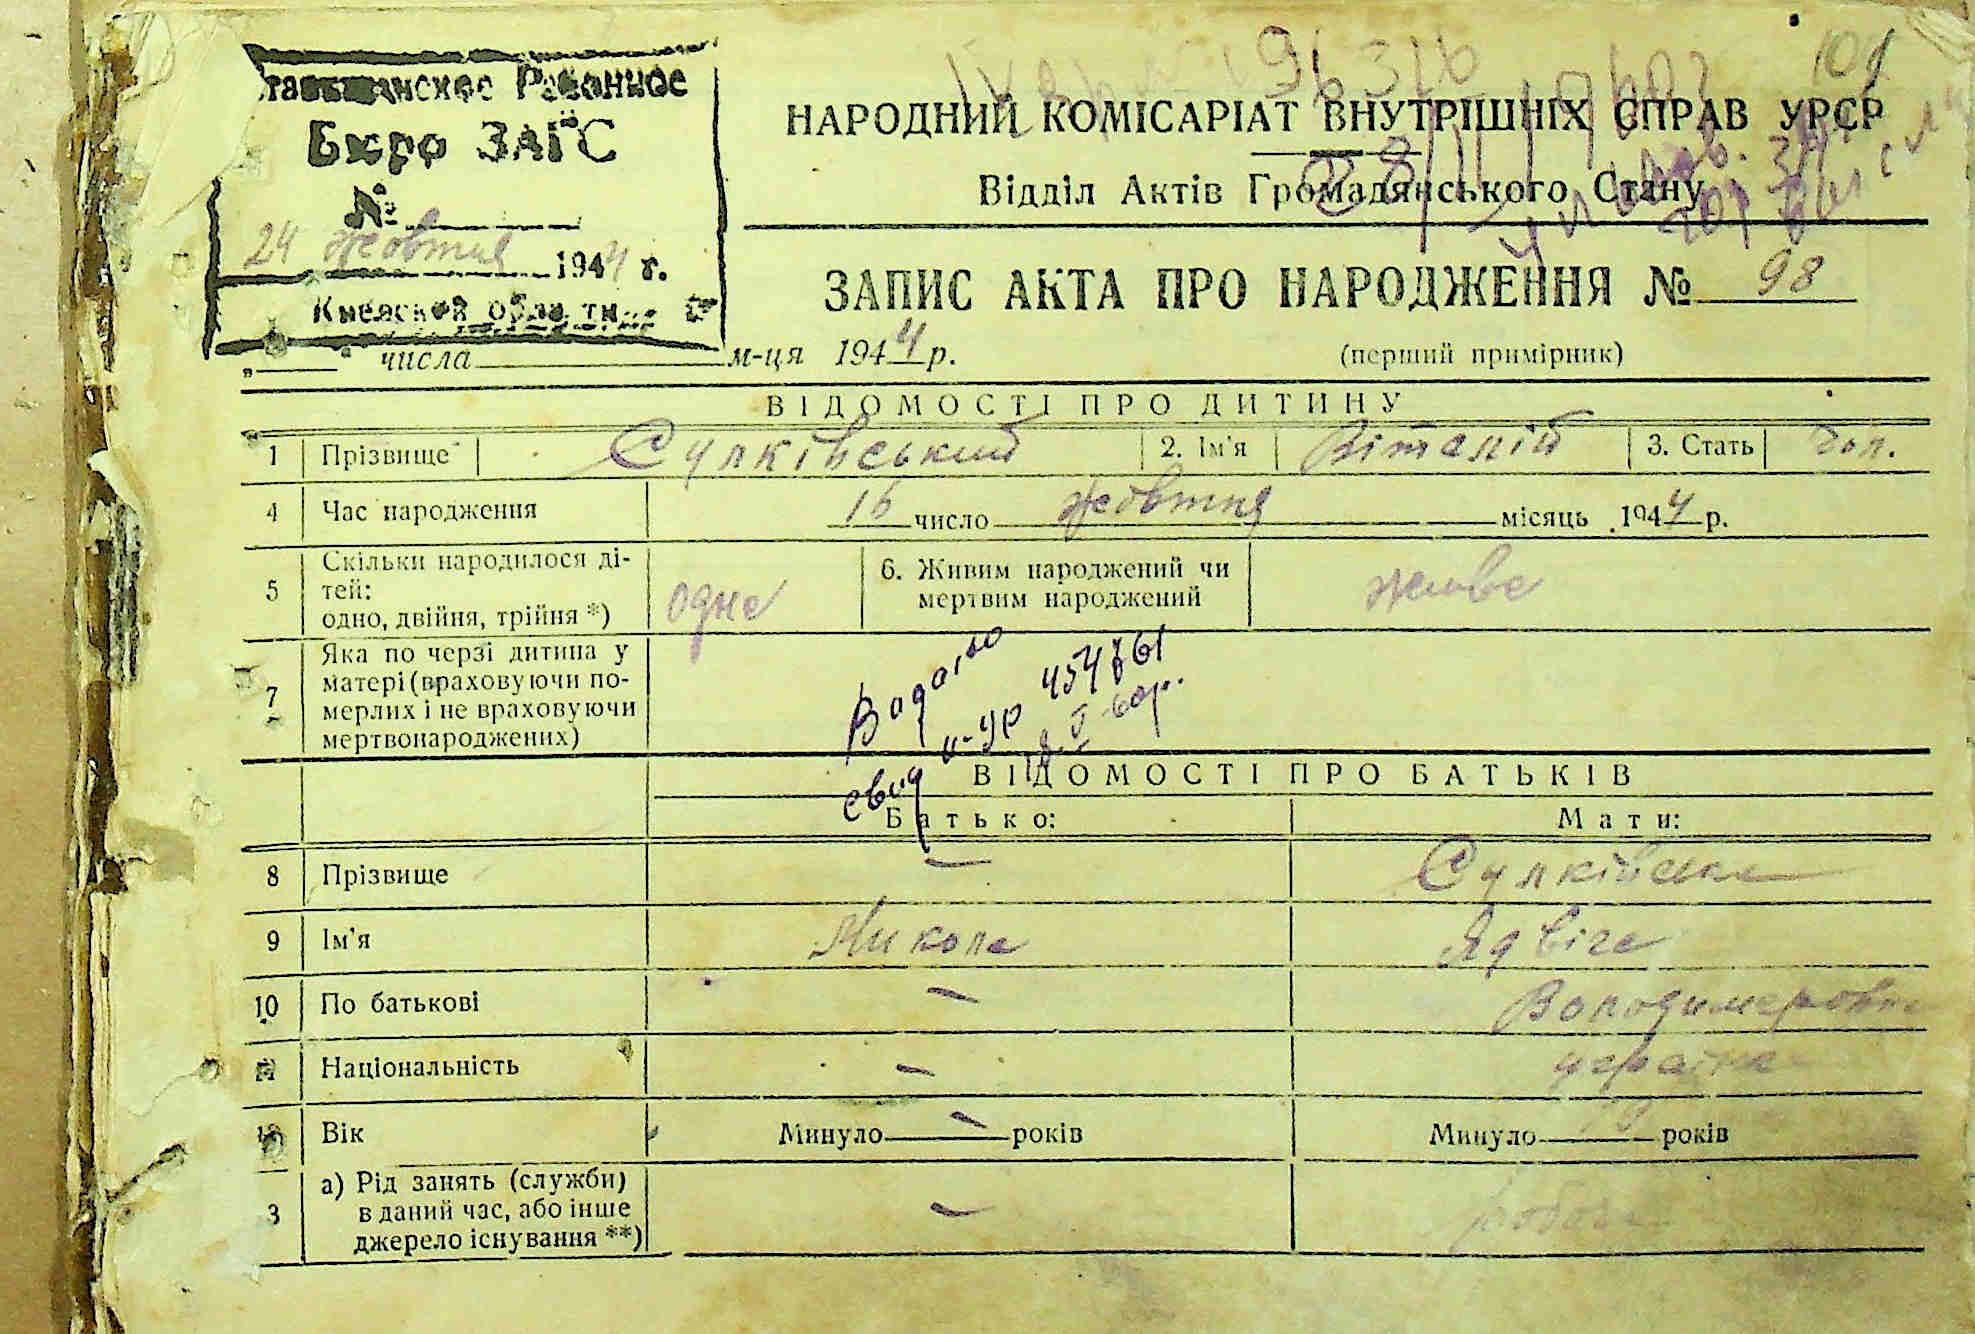 Районное
Бюро ЗАГС
№
24 жовтня 1944 г.
Киевской
109
НАРОДНИЙ КОМІСАРІАТ ВНУТРІШНІХ СПРАВ УРСР
Відділ Актів Громадянського Стану
ЗАПИС АКТА ПРО НАРОДЖЕННЯ № 98
„ “ числа м-ця 1944 р. (перший примірник)
ВІДОМОСТІ ПРО ДИТИНУ
1 Прізвище Сулківський 2. Ім'я Віталій 3. Стать чол.
4 Час народження 16 число жовтня місяць 1944 р.
5 Скільки народилося ді-
тей:
одно, двійня, трійня *) одне
6. Живим народжений чи
мертвим народжений живе
7 Яка по черзі дитина у
матері (враховуючи по-
мерлих і не враховуючи
мертвонароджених)
свид 454761
ВІДОМОСТІ ПРО БАТЬКІВ
Батько: Мати:
8 Прізвище — Сулківська
9 Ім'я Микола Ядвіга
10 По батькові — Володимеровна
11 Національність — україн
12 Вік Минуло — років Минуло років
3 а) Рід занять (служби)
в даний час, або інше
джерело існування **) —